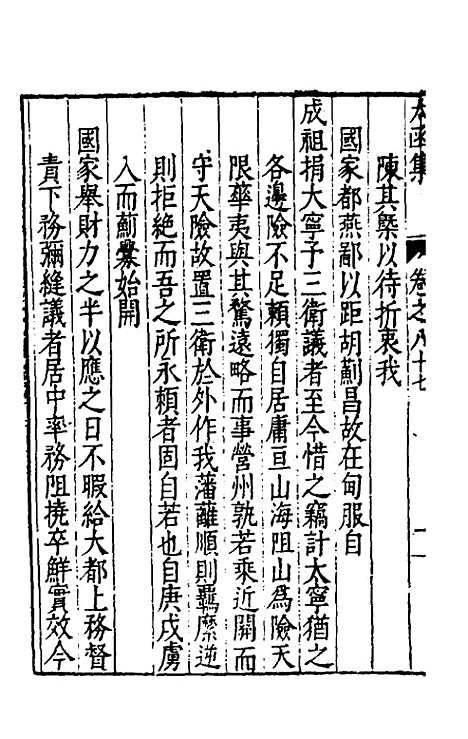 太函集
卷之八十七
陳其槩以待折衷我
國家都燕鄗以距胡薊昌故在甸服自
成祖捐大寧予三衛議者至今惜之竊計大寧猶之
各邊險不足賴獨自居庸亘山海阻山爲險天
限華夷與其騖遠略而事營州孰若乘近關而
守天險故置三衛於外作我藩蘺順則羈縻逆
則拒絶而吾之所永賴者固自若也自庚戌虜
入而薊釁始開
國家舉財力之半以應之日不暇給大都上務督
責下務彌縫議者居中率務阻撓卒鮮實效今